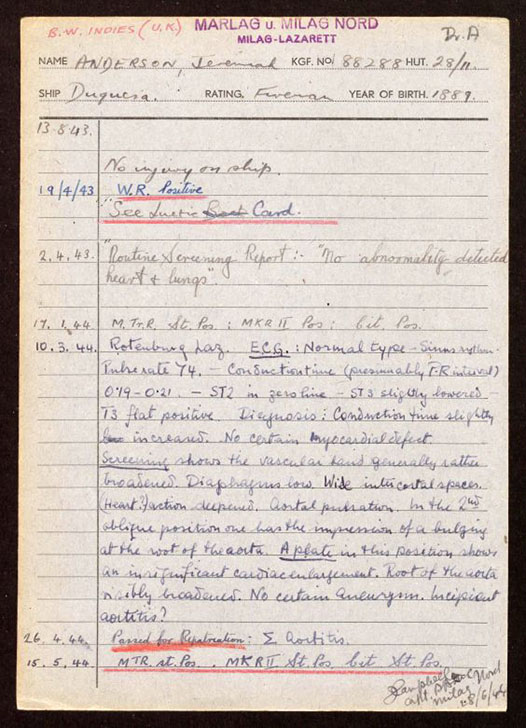 B.W. INDIES (U.K.)
MARLAG u. MILAG NORD
MILAG-LAZARETT
Dr. A
NAME ANDERSON, Jeremiah KGF. NO/ 88288 HUT. 28/11.
SHIP Duquesa. RATING. Fireman YEAR OF BIRTH. 1889.
13.8.43.
No injury on ship.
19/4/43 W.R. Positive
"See Luetic Card.
2.4.43. "Routine Screening Report:- "No abnormality detected
heart & lungs"
17.1.44 M.Tr.R. St. Pos : MKR II Pos : Cit. Pos.
10.3.44. Rotenburg Laz. ECG.: Normal type - Sinus rythm -
Pulse rate 74. - Conduction time (presumably P-R interval)
0.19-0.21. - ST2 in zero line - ST3 slightly lowered -
T3 flat positive Diagnosis: Conduction time slightly
increased. No certain Myocardial defect
Screening shows the vascular band generally rather
broadened. Diaphagms low. Wide intercostal spaces.
(Heart?) action deepened. Aortal pulsation. In the 2nd
oblique position one has the impression of a bulging
at the root of the aorta. A plate in this position shows
an insignificant cardiac enlargement. Root of the aorta
visibly broadened. No certain Aneurysm. Incipient
aortitis?
26.4.44. Passed for Repatriation: Σ Aortitis.
15.5.44. MTR. st. Pos. MKR II St. Pos. Cit St. Pos.
Nord
Milag
8/6/44